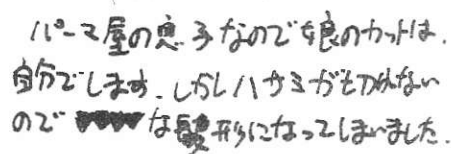 パーマ屋の息子なので娘のカットは、
自分でします。しかしハサミが切れない
ので な髪形になってしまいました。